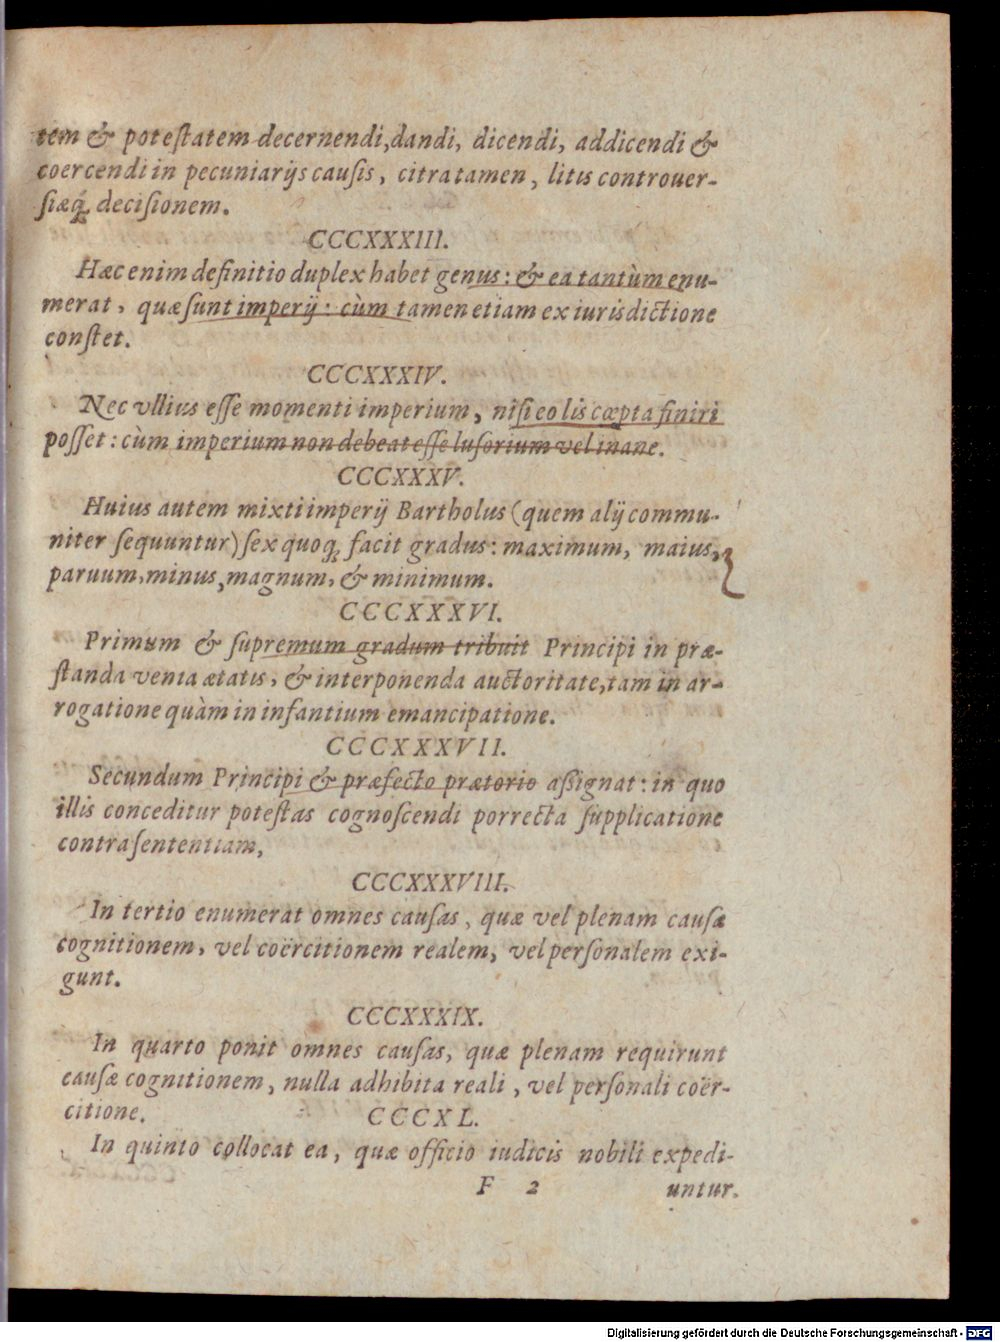 tem & poteſtatem decernendi, dandi, dicendi, addicendi &
coercendi in pecuniarijs cauſis, citra tamen, litis controuer-
ſiæq́; deciſionem.
CCCXXXIII.
Hæc enim definitio duplex habet genus: & ea tantùm enu-
merat, quæ ſunt imperij: cùm tamen etiam ex iurisdictione
conſtet.
CCCXXXIV.
Nec vllius eſſe momenti imperium, niſi eo lis cœpta finiri
poſſet: cùm imperium non debeat eſſe luſorium vel inane.
CCCXXXV.
Huius autem mixti imperij Bartholus (quem alij commu-
niter ſequuntur) ſex quoq; facit gradus: maximum, maius,
paruum, minus, magnum, & minimum.
CCCXXXVI.
Primum & ſupremum gradum tribuit Principi in præ-
ſtanda venia ætatis, & interponenda auctoritate, tam in ar-
rogatione quàm in infantium emancipatione.
CCCXXXVII.
Secundum Principi & præfecto prætorio aſsignat: in quo
illis conceditur poteſtas cognoſcendi porrecta ſupplicatione
contra ſententiam,
CCCXXXVIII.
In tertio enumerat omnes cauſas, quæ vel plenam cauſæ
cognitionem, vel coërcitionem realem, vel perſonalem exi-
gunt.
CCCXXXIX.
In quarto ponit omnes cauſas, quæ plenam requirunt
cauſæ cognitionem, nulla adhibita reali, vel perſonali coër-
citione. CCCXL.
In quinto collocat ea, quæ officio iudicis nobili expedi-
F 2 untur.
Digitalisierung gefördert durch die Deutsche Forschungsgemeinschaft - DFG